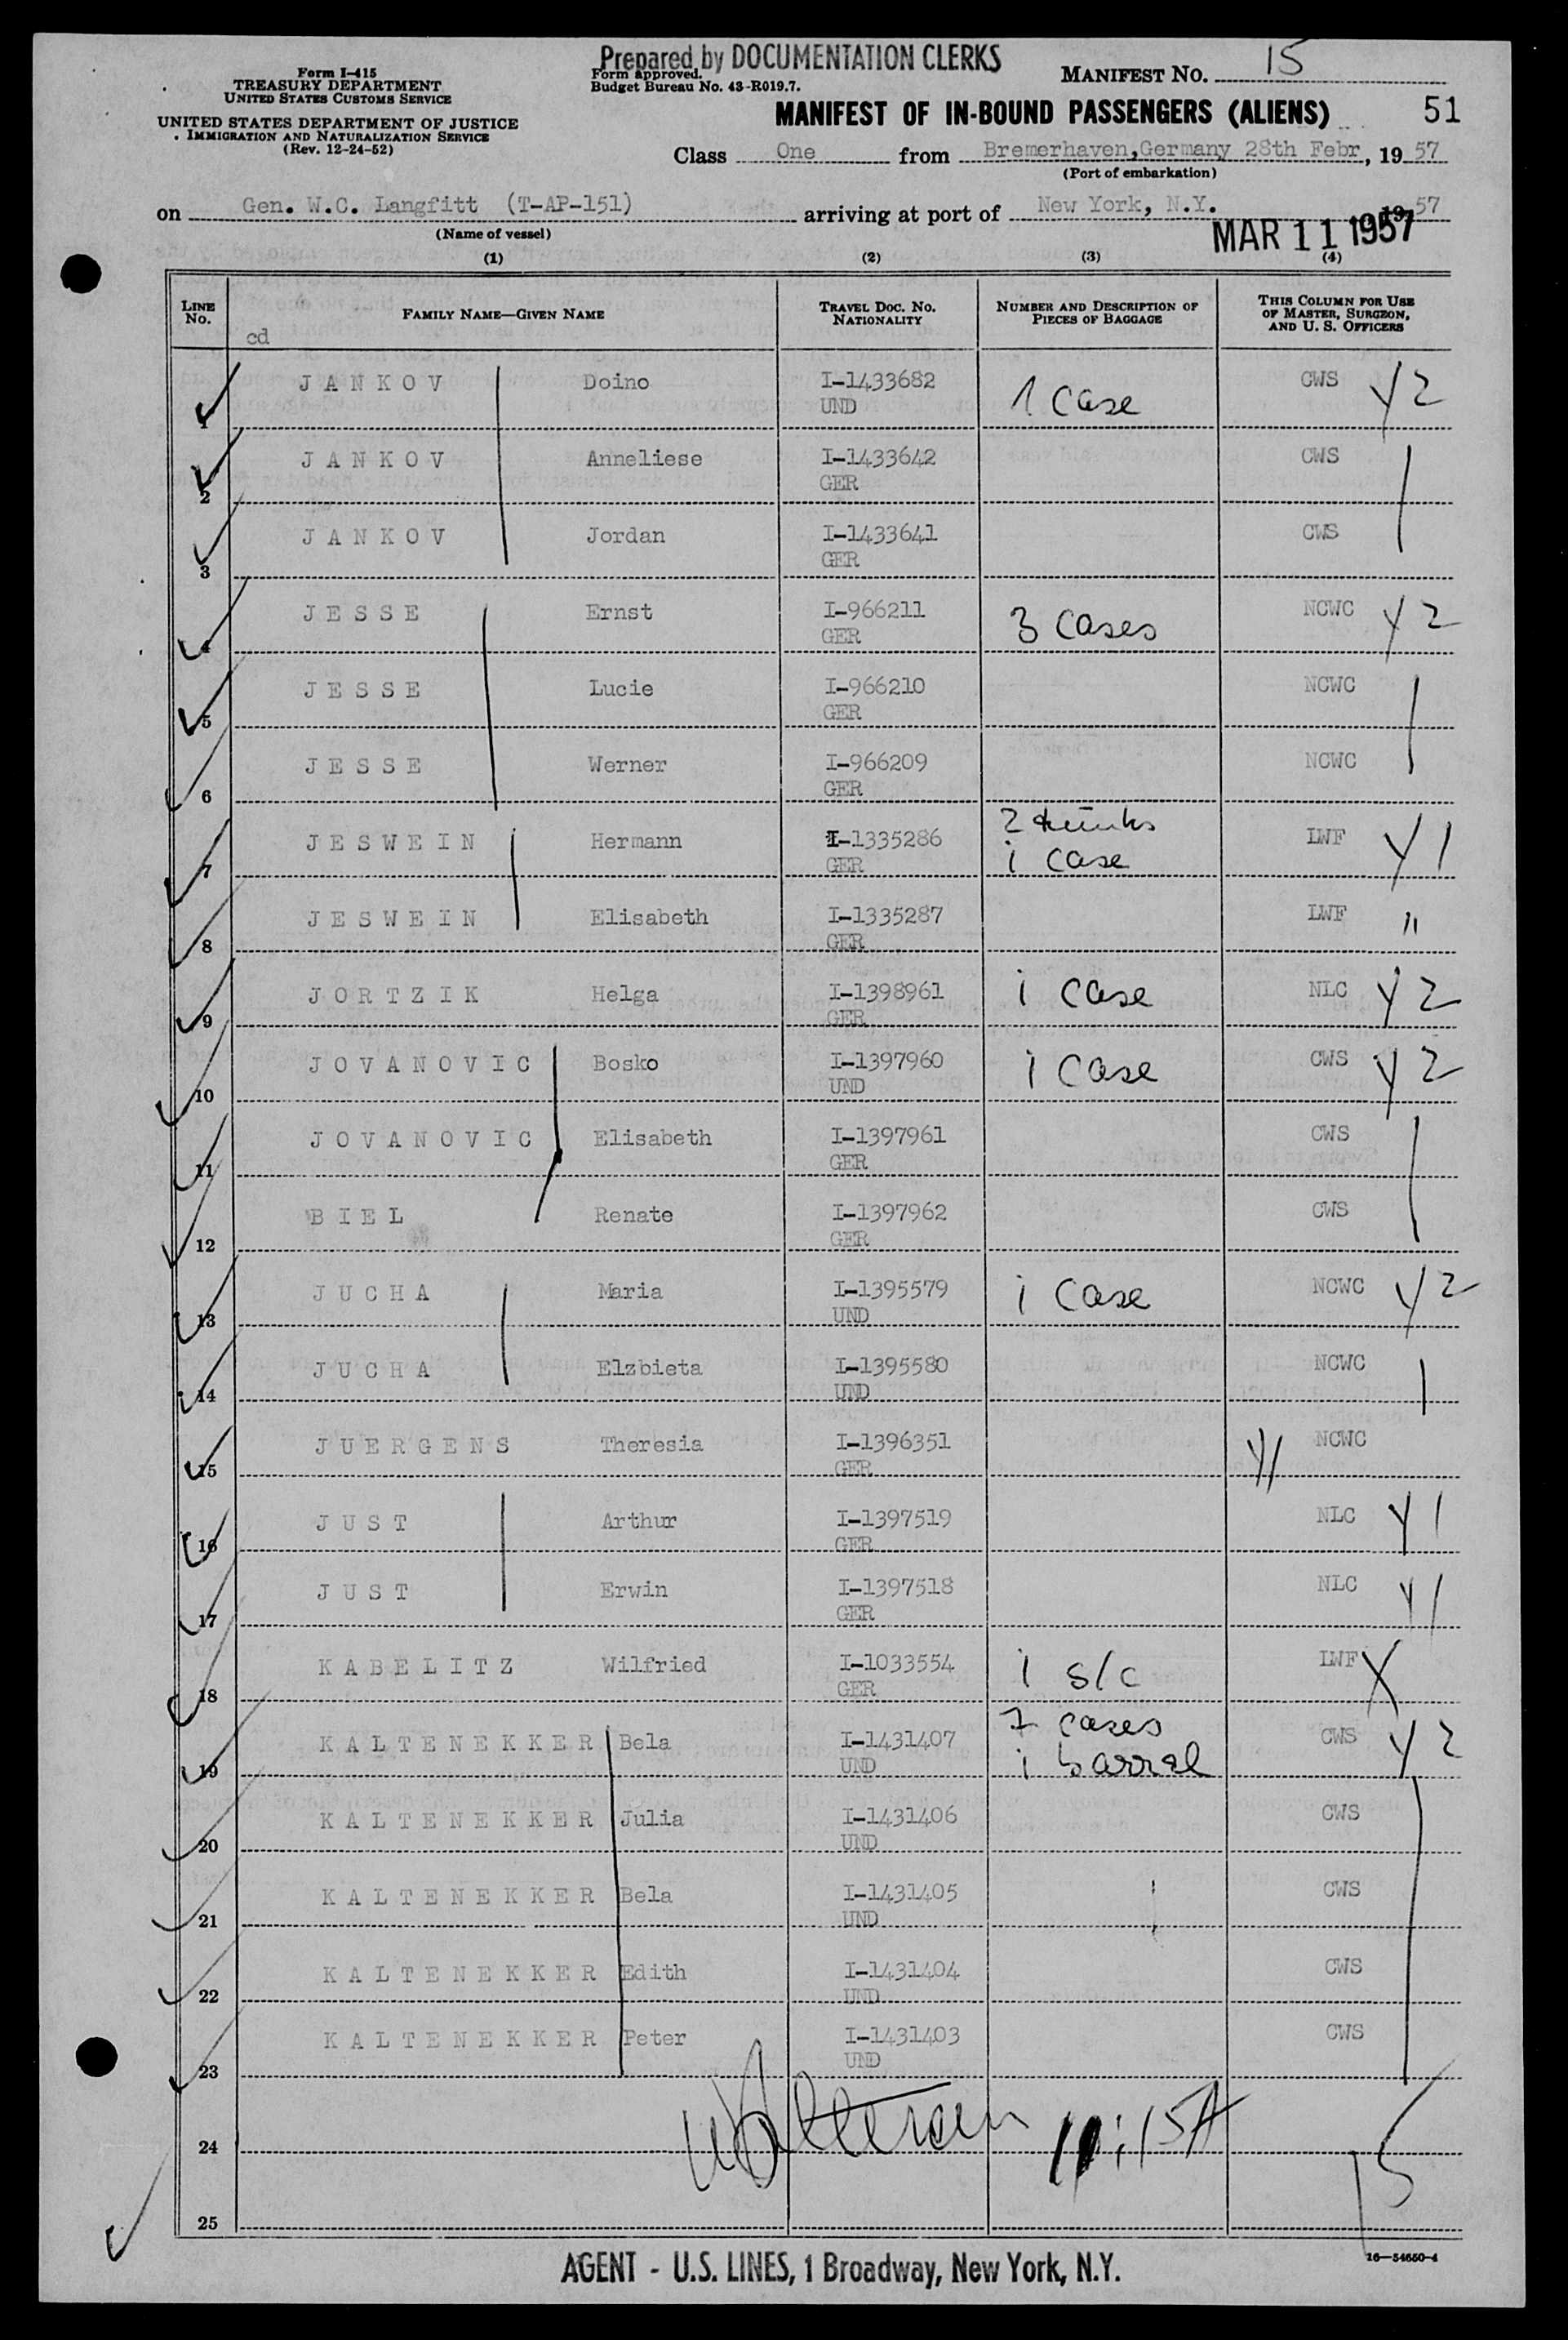 Prepared by DOCUMENTATION CLERKS
Form I-415
TREASURY DEPARTMENT
UNITED STATES CUSTOMS SERVICE
UNITED STATES DEPARTMENT OF JUSTICE
IMMIGRATION AND NATURALIZATION SERVICE
(Rev. 12-24-52)
Form approved.
Budget Bureau No. 43-R019.7.
MANIFEST NO. 15
MANIFEST OF IN-BOUND PASSENGERS (ALIENS) 51
Class One from Bremerhaven,Germany 28th Febr, 19 57
(Port of embarkation)
on Gen. W.C. Langfitt (T-AP-151) arriving at port of New York, N.Y. 1957
(Name of vessel)
MAR 11 1957
(1) (2) (3) (4)
LINE NO. FAMILY NAME—GIVEN NAME TRAVEL DOC. NO. NATIONALITY NUMBER AND DESCRIPTION OF PIECES OF BAGGAGE THIS COLUMN FOR USE OF MASTER, SURGEON, AND U. S. OFFICERS
cd
1 JANKOV Doino I-1433682 UND 1 Case CWS Y2
2 JANKOV Anneliese I-1433642 GER CWS
3 JANKOV Jordan I-1433641 GER CWS
4 JESSE Ernst I-966211 GER 3 Cases NCWC Y2
5 JESSE Lucie I-966210 GER NCWC
6 JESSE Werner I-966209 GER NCWC
7 JESWEIN Hermann I-1335286 GER 2 trunks 1 case LWF Y1
8 JESWEIN Elisabeth I-1335287 GER LWF "
9 JORTZIK Helga I-1398961 GER 1 Case NLC Y2
10 JOVANOVIC Bosko I-1397960 UND 1 Case CWS Y2
11 JOVANOVIC Elisabeth I-1397961 GER CWS
12 BIEL Renate I-1397962 GER CWS
13 JUCHA Maria I-1395579 UND 1 Case NCWC Y2
14 JUCHA Elzbieta I-1395580 UND NCWC
15 JUERGENS Theresia I-1396351 GER Y1 NCWC
16 JUST Arthur I-1397519 GER NLC Y1
17 JUST Erwin I-1397518 GER NLC Y1
18 KABELITZ Wilfried I-1033554 GER 1 s/c LWF X
19 KALTENEKKER Bela I-1431407 UND 7 cases 1 barrel CWS Y2
20 KALTENEKKER Julia I-1431406 UND CWS
21 KALTENEKKER Bela I-1431405 UND CWS
22 KALTENEKKER Edith I-1431404 UND CWS
23 KALTENEKKER Peter I-1431403 UND CWS
24 11:15A 15
25
AGENT - U.S. LINES, 1 Broadway, New York, N.Y.
16—54650-4